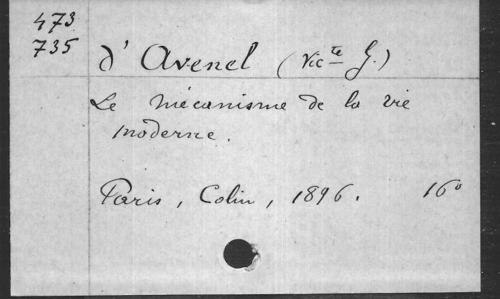 473
735
d'Avenel (Victe G.)
Le mécanisme de la vie
moderne.
Paris, Colin, 1896. 16°